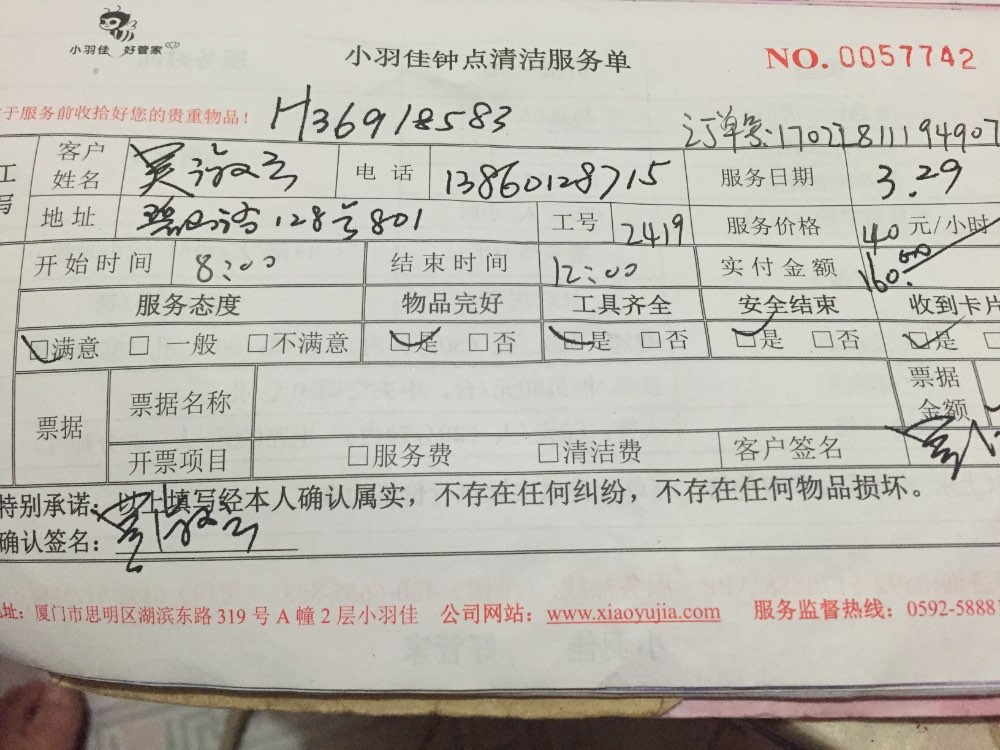 小羽佳 好管家
小羽佳钟点清洁服务单
NO. 0057742
于服务前收拾好您的贵重物品！
H36918583
订单号:17022811194907
客户姓名 电话 13860128715 服务日期 3.29
地址 128号801 工号 2419 服务价格 40元/小时
开始时间 8:00 结束时间 12:00 实付金额 160.00
服务态度 物品完好 工具齐全 安全结束 收到卡片
☑满意 □一般 □不满意 ☑是 □否 ☑是 □否 ☑是 □否 ☑是
票据 票据名称 票据金额
开票项目 □服务费 □清洁费 客户签名
特别承诺：以上填写经本人确认属实，不存在任何纠纷，不存在任何物品损坏。
确认签名：
地址：厦门市思明区湖滨东路 319 号 A 幢 2 层小羽佳 公司网站：www.xiaoyujia.com 服务监督热线：0592-58881